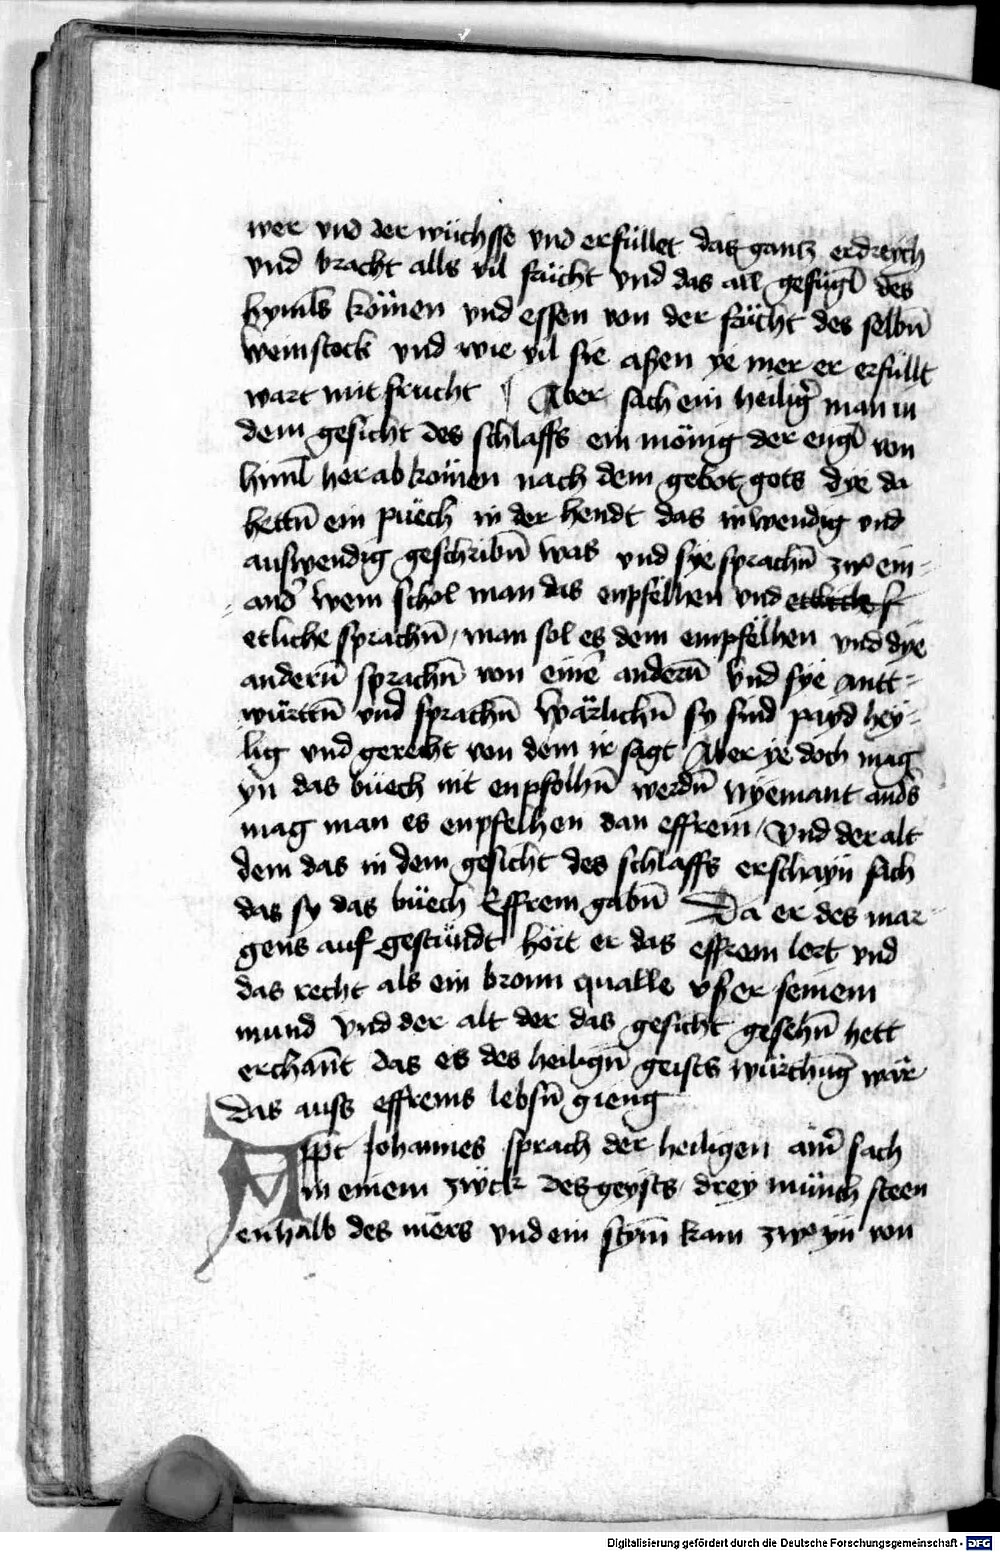 wer vnd der wüchsse vnd erfüllet das gantz erdreych
vnd bracht alls vil frücht vnd das all gefügl des
hymls kömen vnd essen von der frücht des selbn̄
weinstock vnd wie vil sie aßen ye mer er erfüllt
wart mit frucht ¶ Aber sach ein heilig̃ man in
dem gesicht des schlaffs ein mönig der engl von
himl herab kömen nach dem gebot gots dye da
hettn̄ ein püech in der hendt das inwendig vnd
auswendig geschribn̄ was vnd sye sprachn̄ zwo ein-
and̾ wem schol man das enpfelhen vnd
etliche sprachn̄, man sol es dem empfelhen vnd dye
anderñ sprachn̄ von eine̾ anderñ vnd sye antt-
württn̄ vnd sprachn̄ wärlichn̄ sy sind payd hey-
lig vnd gerecht von dem ir sagt Aber ye doch mag
yn das büech nit enpfolhn̄ werdn̄ Nyemant and̾s
mag man es enpfelhen dan effrem, Vnd der alt
dem das in dem gesicht des schlaffs erschayn sach
das sy das büech Effrem gabn̄ Da er des mar-
gens auf gestündt hört er das effrem lert vnd
das recht als ein bronn qualle vßer seinem
mund vnd der alt der das gesicht gesehn̄ hett
erchan̄t das es des heilign̄ geists würchunḡ wär
Das auss effrems lebsn̄ gieng
Appt Johannes sprach der heiligen ain̾ sach
in einem zwck des geysts, drey münch steen
enhalb des mers vnd ein stym̄ kam zwo yn von